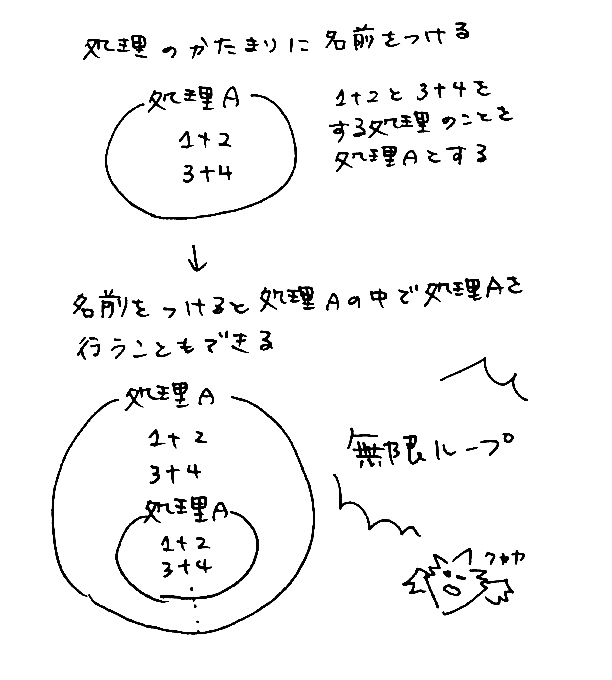 処理のかたまりに名前をつける
処理A
1+2
3+4
1+2と3+4を
する処理のことを
処理Aとする
↓
名前をつけると処理Aの中で処理Aを
行うこともできる
処理A
1+2
3+4
処理A
1+2
3+4
無限ループ